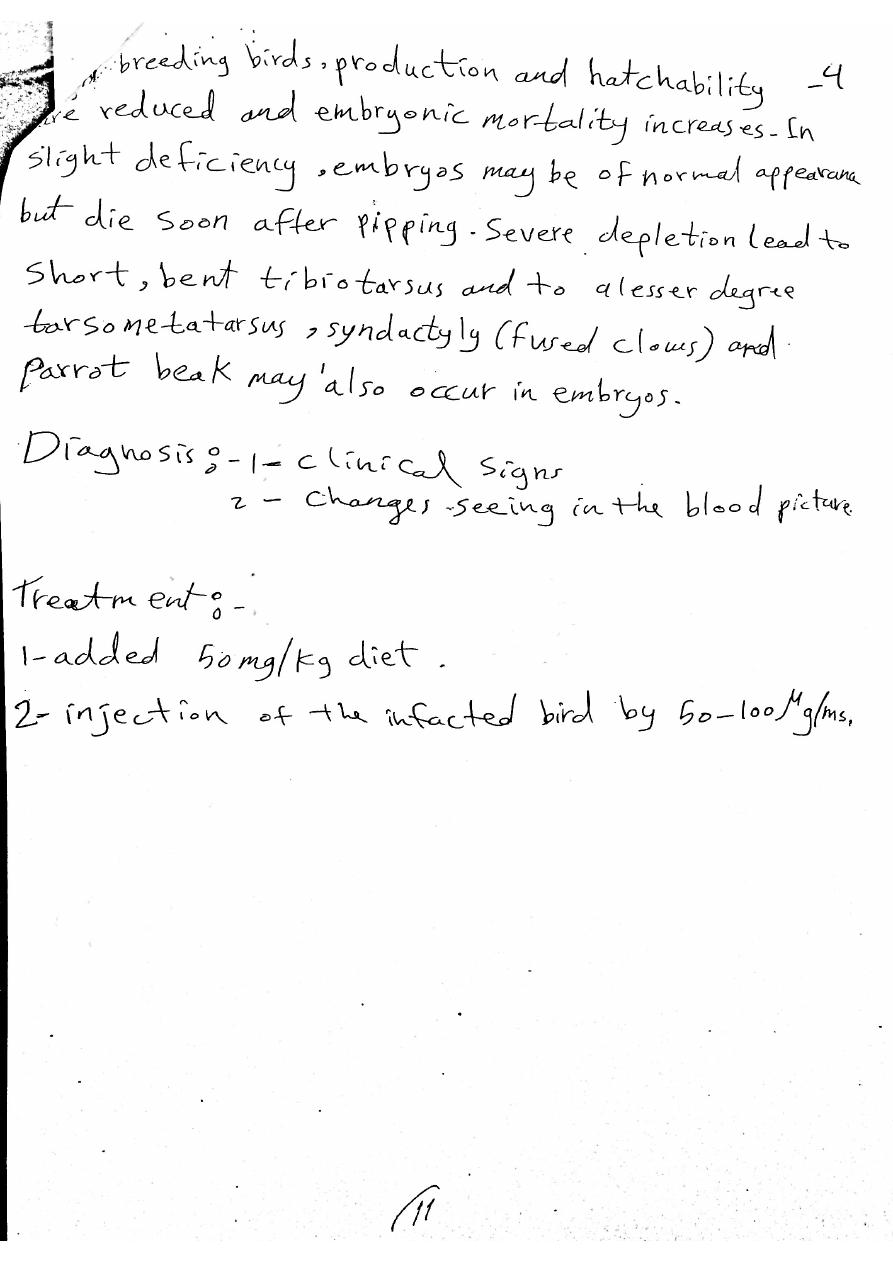 breeding birds, production and hatchability -4
are reduced and embryonic mortality increases. In
slight deficiency, embryos may be of normal appearana
but die soon after pipping. Severe depletion lead to
short, bent tibiotarsus and to a lesser degree
tarsometatarsus, syndactyly (fused claws) and
Parrot beak may also occur in embryos.
Diagnosis:-1- clinical signs
2 - changes seeing in the blood picture.
Treatment:-
1-added 50mg/kg diet.
2- injection of the infacted bird by 50-100 μg/ms.
11